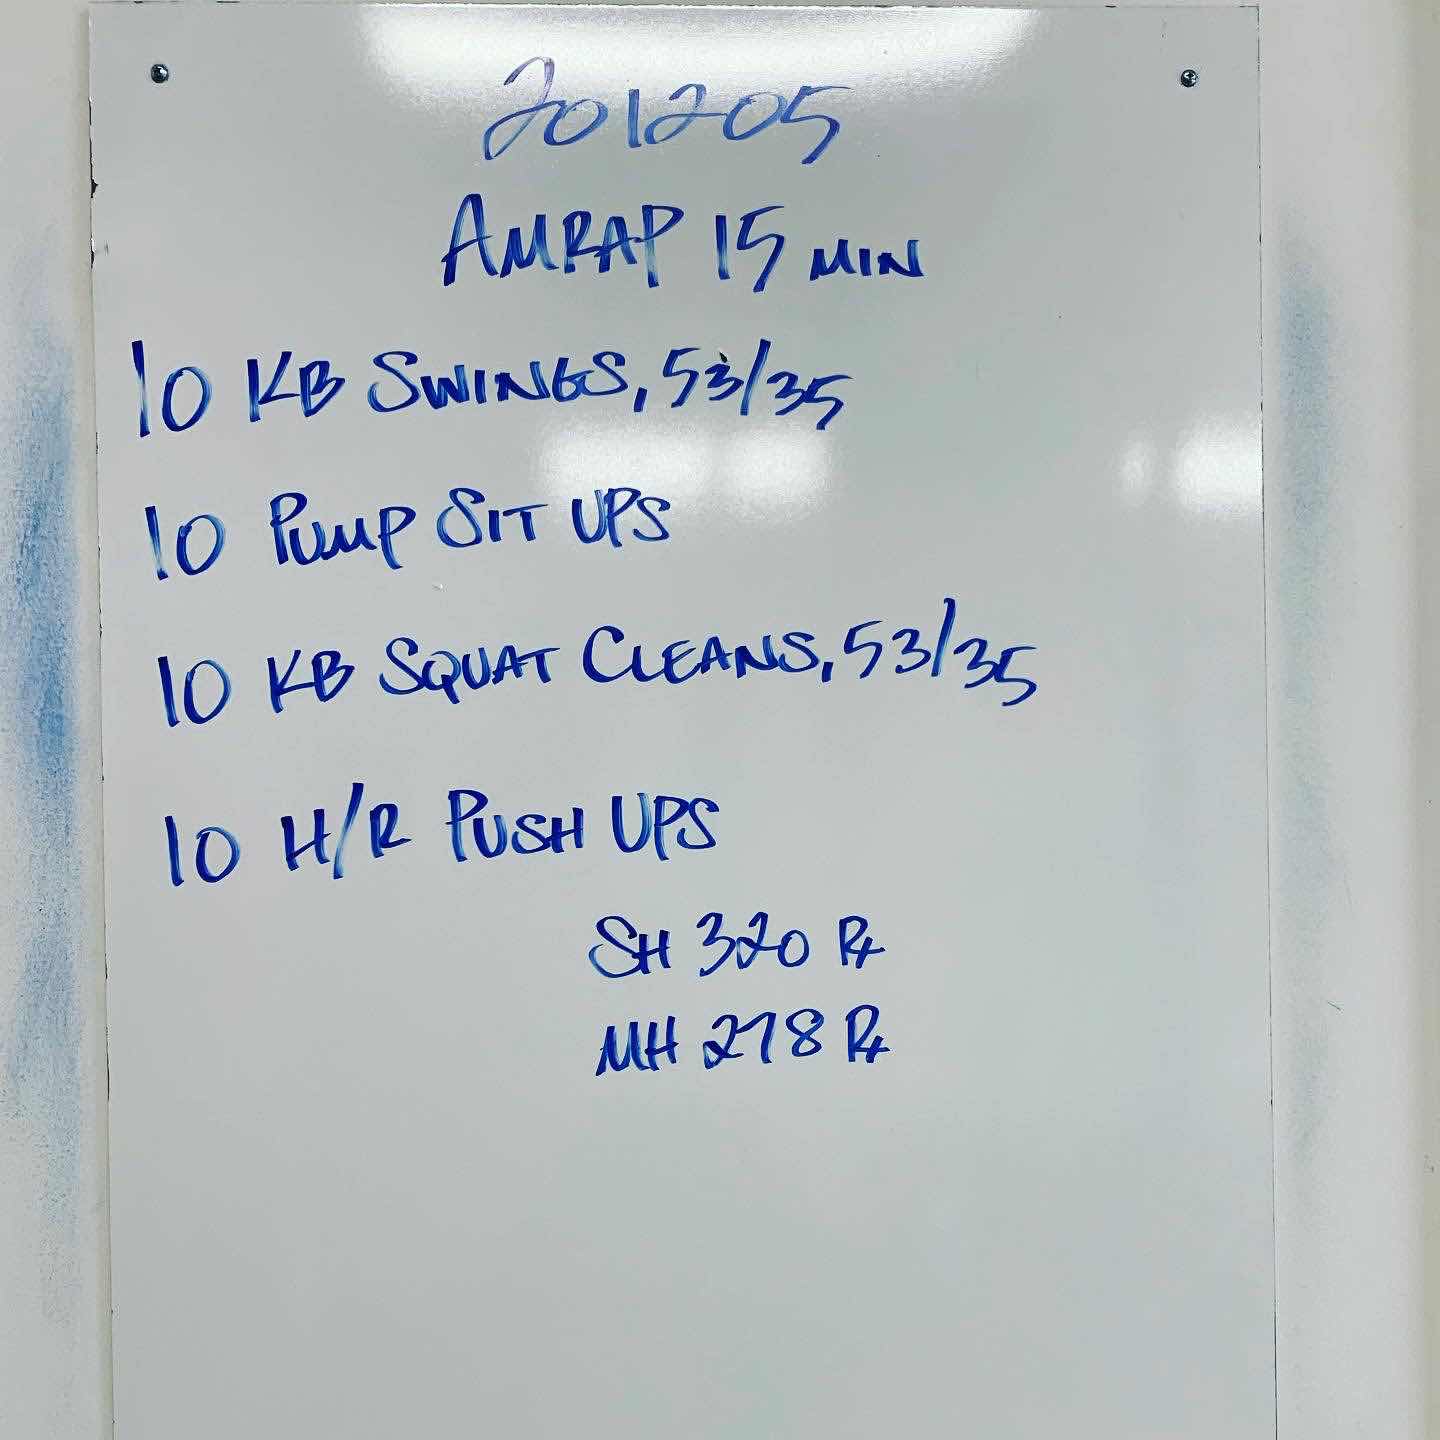 201205
AMRAP 15 MIN
10 KB SWINGS, 53/35
10 PUMP SIT UPS
10 KB SQUAT CLEANS, 53/35
10 H/R PUSH UPS
SH 320 Rx
MH 278 Rx